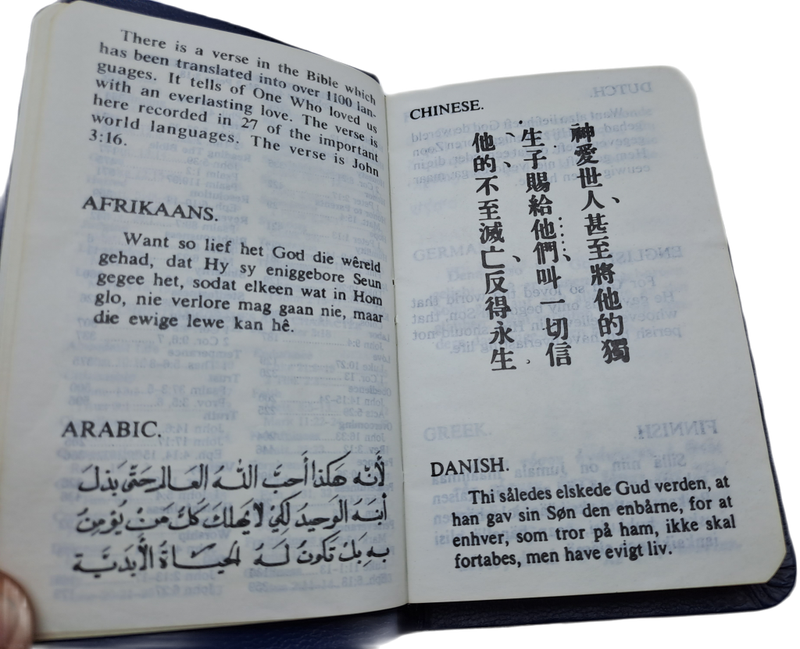 There is a verse in the Bible which
has been translated into over 1100 lan-
guages. It tells of One Who loved us
with an everlasting love. The verse is
here recorded in 27 of the important
world languages. The verse is John
3:16.
AFRIKAANS.
Want so lief het God die wêreld
gehad, dat Hy sy eniggebore Seun
gegee het, sodat elkeen wat in Hom
glo, nie verlore mag gaan nie, maar
die ewige lewe kan hê.
ARABIC.
لأَنَّه هكذا أَحبَّ اللهُ العَالم حَتَّى بَذلَ
ابنَهُ الوحِيدَ لكَيْ لا يَهلكَ كلُّ مَنْ يُؤمِنُ
بهِ بَل تَكونَ لَهُ الحَياةُ الأَبَديَّة
CHINESE.
神愛世人、甚至將他的獨
生子賜給他們、叫一切信
他的、不至滅亡、反得永生
DANISH.
Thi således elskede Gud verden, at
han gav sin Søn den enbårne, for at
enhver, som tror på ham, ikke skal
fortabes, men have evigt liv.